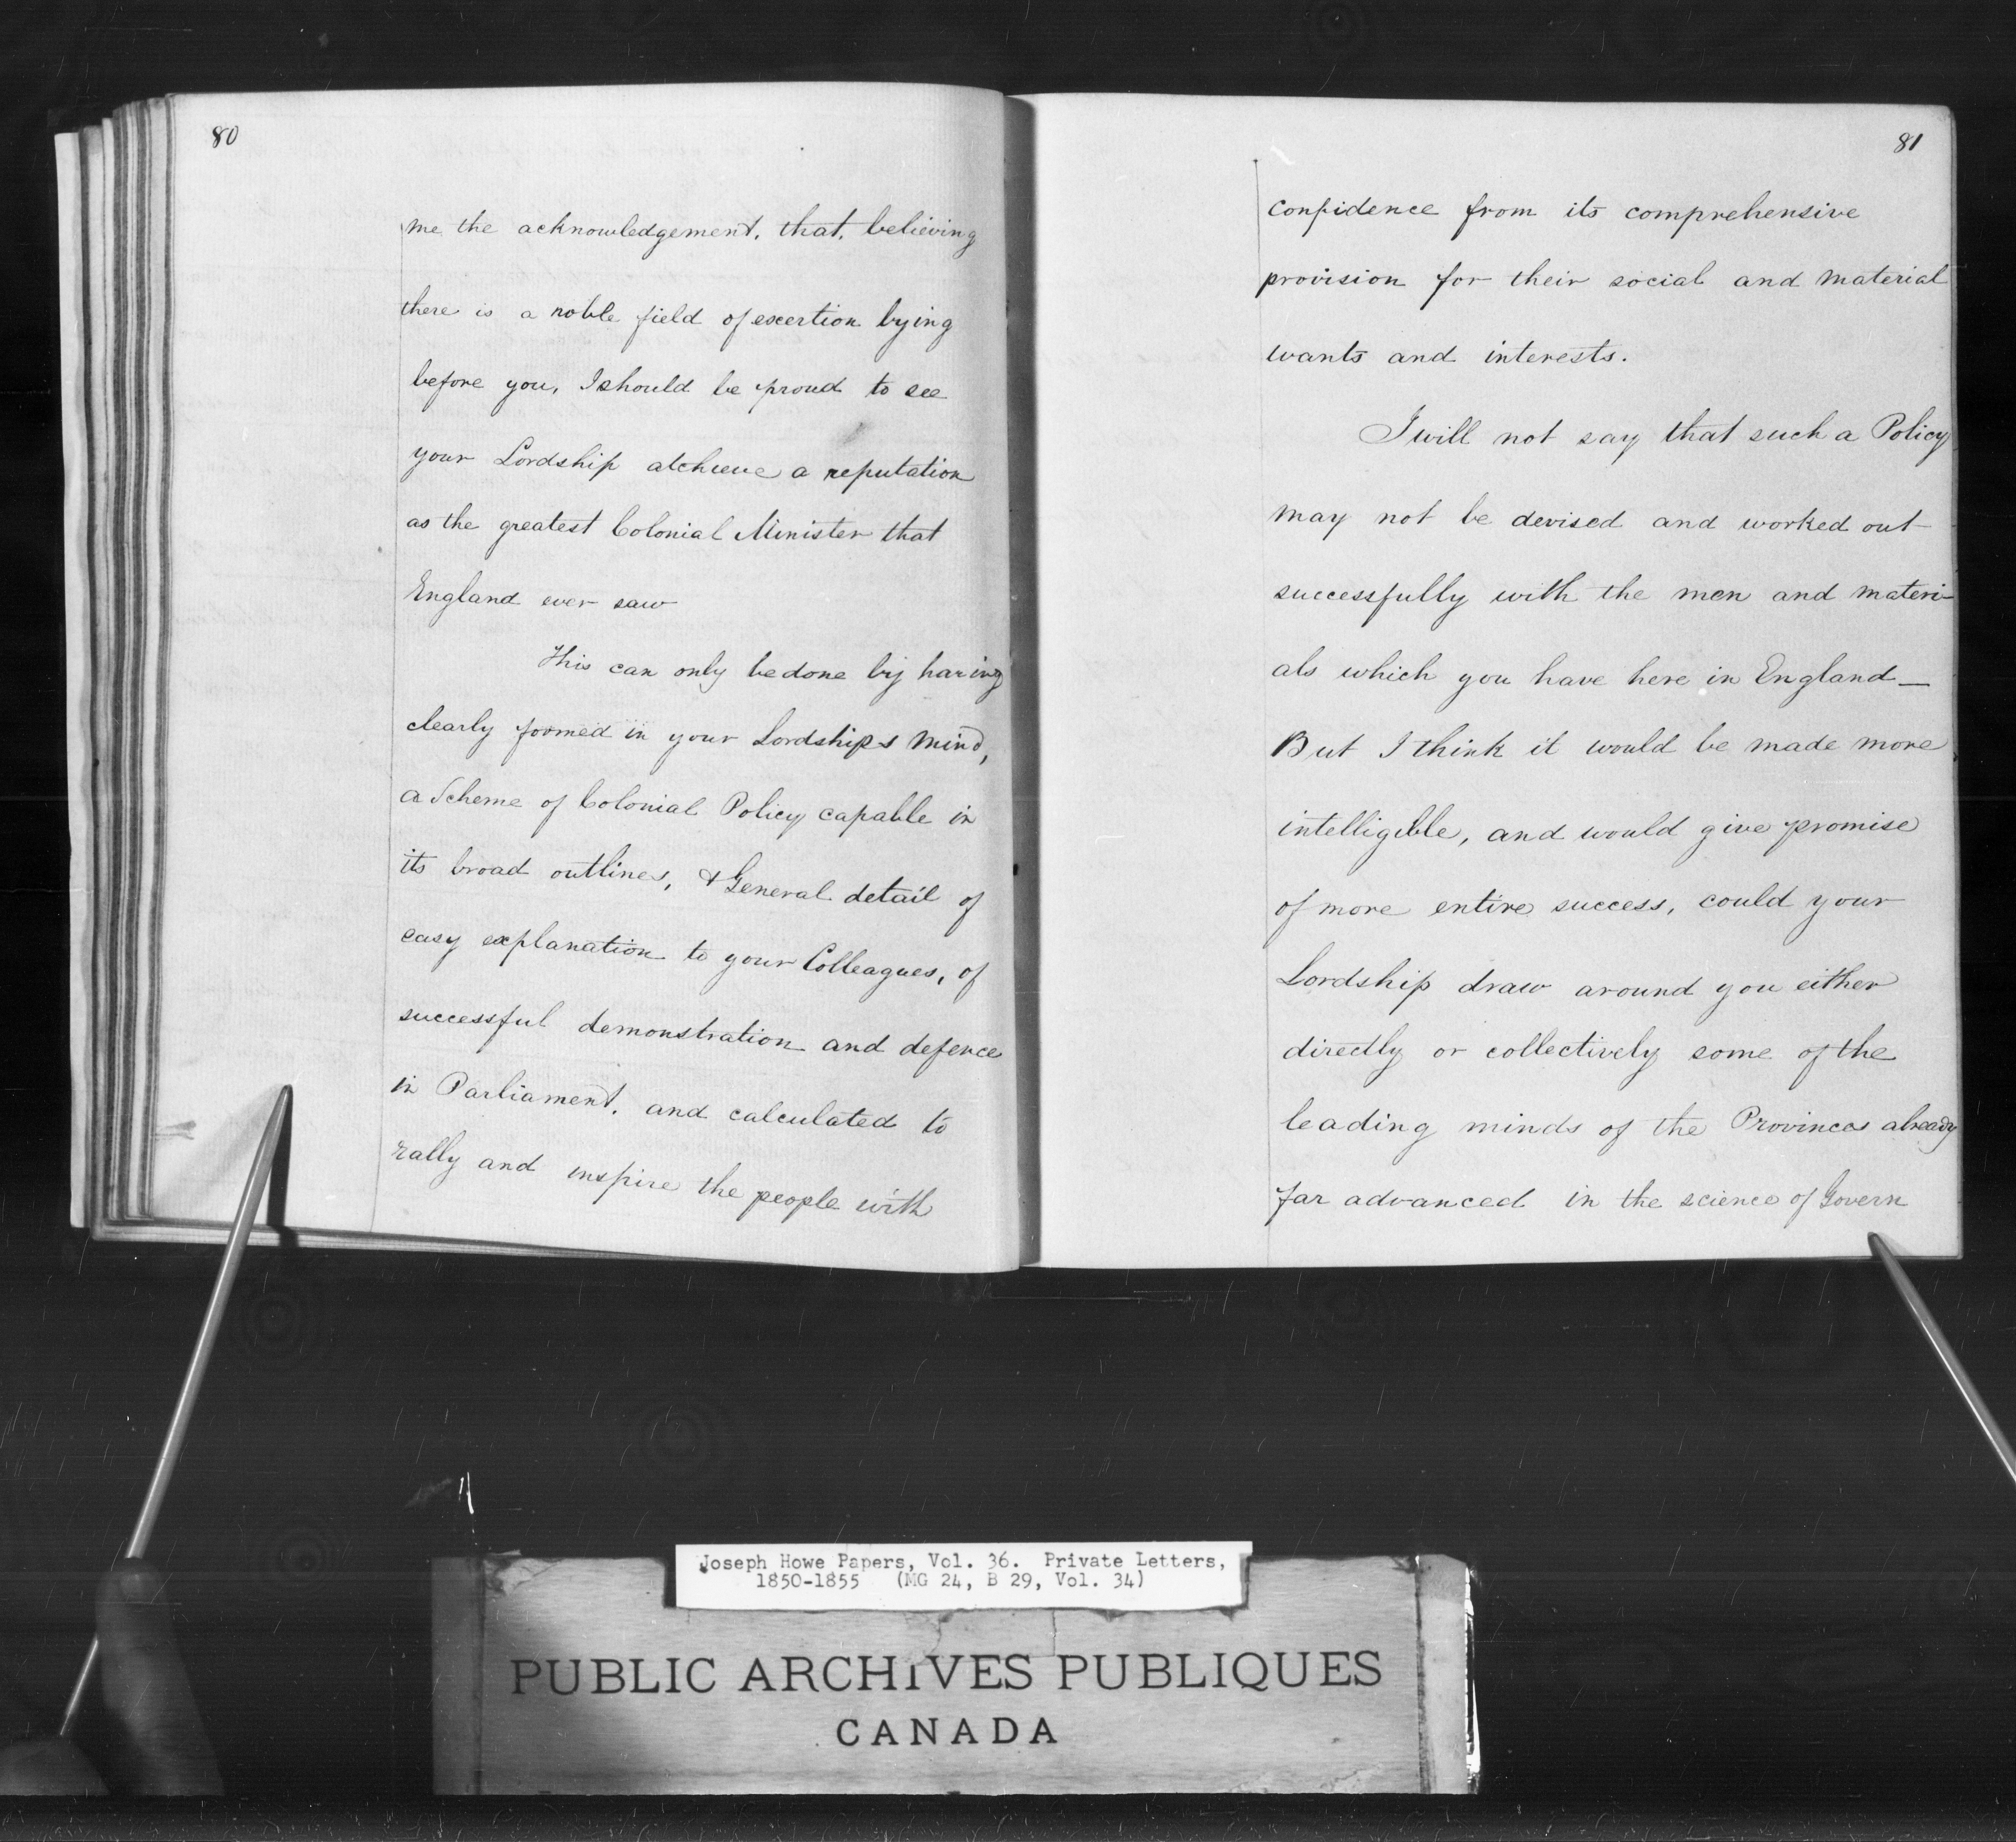 80
me the acknowledgement, that, believing
there is a noble field of exertion lying
before you, I should be proud to see
your Lordship atchieve a reputation
as the greatest Colonial Minister that
England ever saw
This can only be done by having
clearly formed in your Lordships mind,
a Scheme of Colonial Policy capable in
its broad outlines, & General detail of
easy explanation to your Colleagues, of
successful demonstration and defence
in Parliament, and calculated to
rally and inspire the people with
81
confidence from its comprehensive
provision for their social and material
wants and interests.
I will not say that such a Policy
may not be devised and worked out
successfully with the men and materi-
als which you have here in England—
But I think it would be made more
intelligible, and would give promise
of more entire success, could your
Lordship draw around you either
directly or collectively some of the
leading minds of the Provinces already
far advanced in the science of Govern
Joseph Howe Papers, Vol. 36. Private Letters,
1850-1855 (MG 24, B 29, Vol. 34)
PUBLIC ARCHIVES PUBLIQUES
CANADA